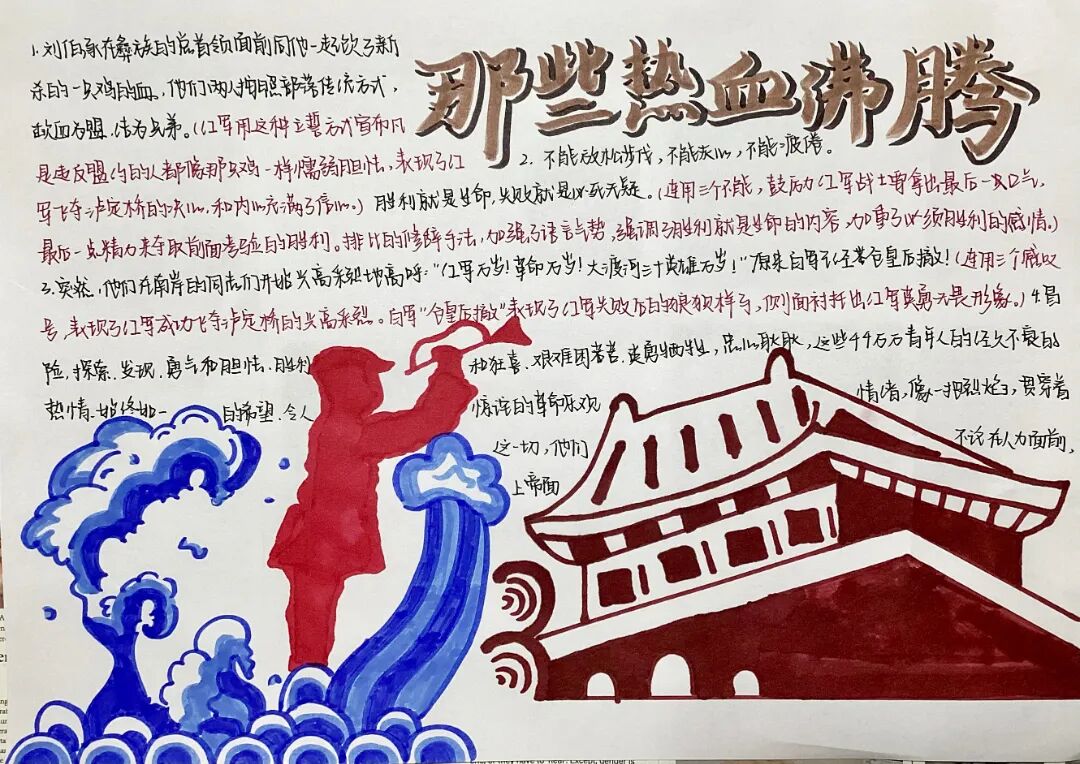 那些热血沸腾
1.刘伯承在彝族的总首领面前同他一起饮了新
杀的一只鸡的血。他们两人按照部落传统方式,
歃血为盟,结为兄弟。(红军用这种立誓方式宣布凡
是违反盟约的人都像那只鸡一样懦弱胆怯,表现了红
2.不能放松步伐,不能灰心,不能疲倦。
军飞夺泸定桥的决心,和内心充满了信心。)胜利就是生命,失败就是必死无疑。(连用三个不能,鼓励红军战士要拿出最后一口气,
最后一点精力来夺取前面考验的胜利。排比的修辞手法,加强了语言气势,强调了胜利就是生命的内容,加重了必须胜利的感情。)
3.突然,他们在南岸的同志们开始兴高采烈地高呼:“红军万岁!革命万岁!大渡河三十英雄万岁!”原来白军已经苍皇后撤!(连用三个感叹
号,表现了红军成功飞夺泸定桥的兴高采烈。白军“仓皇后撤”表现了红军失败后的狼狈样子,侧面衬托出红军英勇无畏形象。)4冒
险、探索、发现、勇气和胆怯、胜利 和狂喜、艰难困苦、英勇牺牲、忠心耿耿,这些千千万万青年人的经久不衰的
热情、始终如一 的希望、令人 惊诧的革命乐观 情绪,像一把烈焰,贯穿着
这一切,他们 不论在人力面前,
上帝面